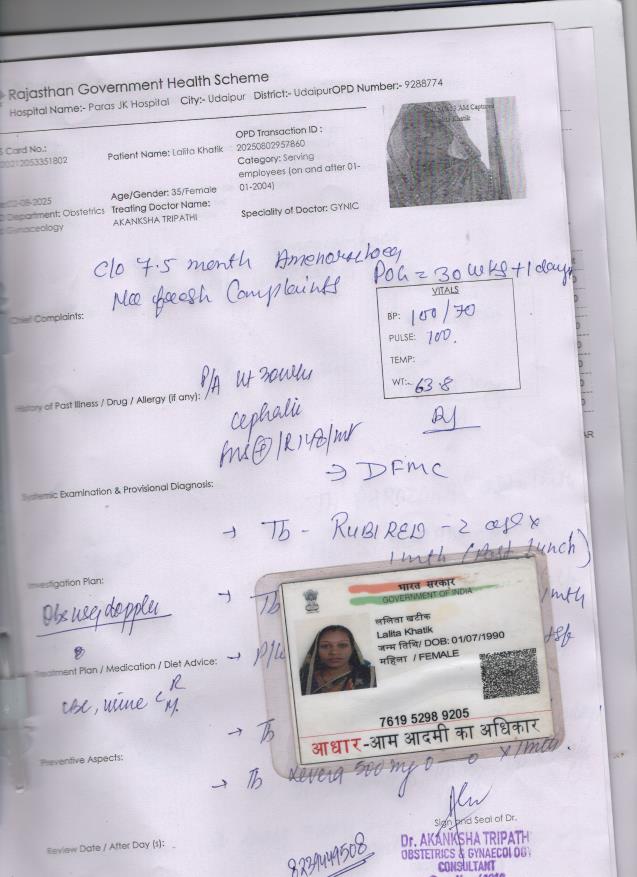 Rajasthan Government Health Scheme
Hospital Name:- Paras JK Hospital City:- Udaipur District:- Udaipur OPD Number:- 9288774
Card No.:
Patient Name: Lalita Khatik
OPD Transaction ID :
20250802957860
Category: Serving
employees (on and after 01-
01-2004)
Age/Gender: 35/Female
Treating Doctor Name:
AKANKSHA TRIPATHI
Speciality of Doctor: GYNIC
-08-2025
Department: Obstetrics
Gynaceology
AM Captured
Lalita Khatik
C/o 7.5 month Amenorrhoea
POG = 30 wks + 1 days
fresh Complaints
Chief Complaints:
VITALS
BP: 100/70
PULSE: 100.
TEMP:
WT:- 63.8
P/A
History of Past Illness / Drug / Allergy (if any):
cephalic
→ DFMC
Systemic Examination & Provisional Diagnosis:
→ Tb - RUBIRED - 2
1 mth (Post lunch)
Investigation Plan:
Obs usg doppler
→ Tb
1mth
Treatment Plan / Medication / Diet Advice:
CBC, urine C R/M
→ Tb
Preventive Aspects:
→ Tb 500 mg 0 - 0 x 1 mth.
भारत सरकार
GOVERNMENT OF INDIA
ललिता खटीक
Lalita Khatik
जन्म तिथि/ DOB: 01/07/1990
महिला / FEMALE
7619 5298 9205
आधार-आम आदमी का अधिकार
Sign and Seal of Dr.
Dr. AKANKSHA TRIPATH
OBSTETRICS & GYNAECOLOGY
CONSULTANT
Review Date / After Day (s):
8239449508